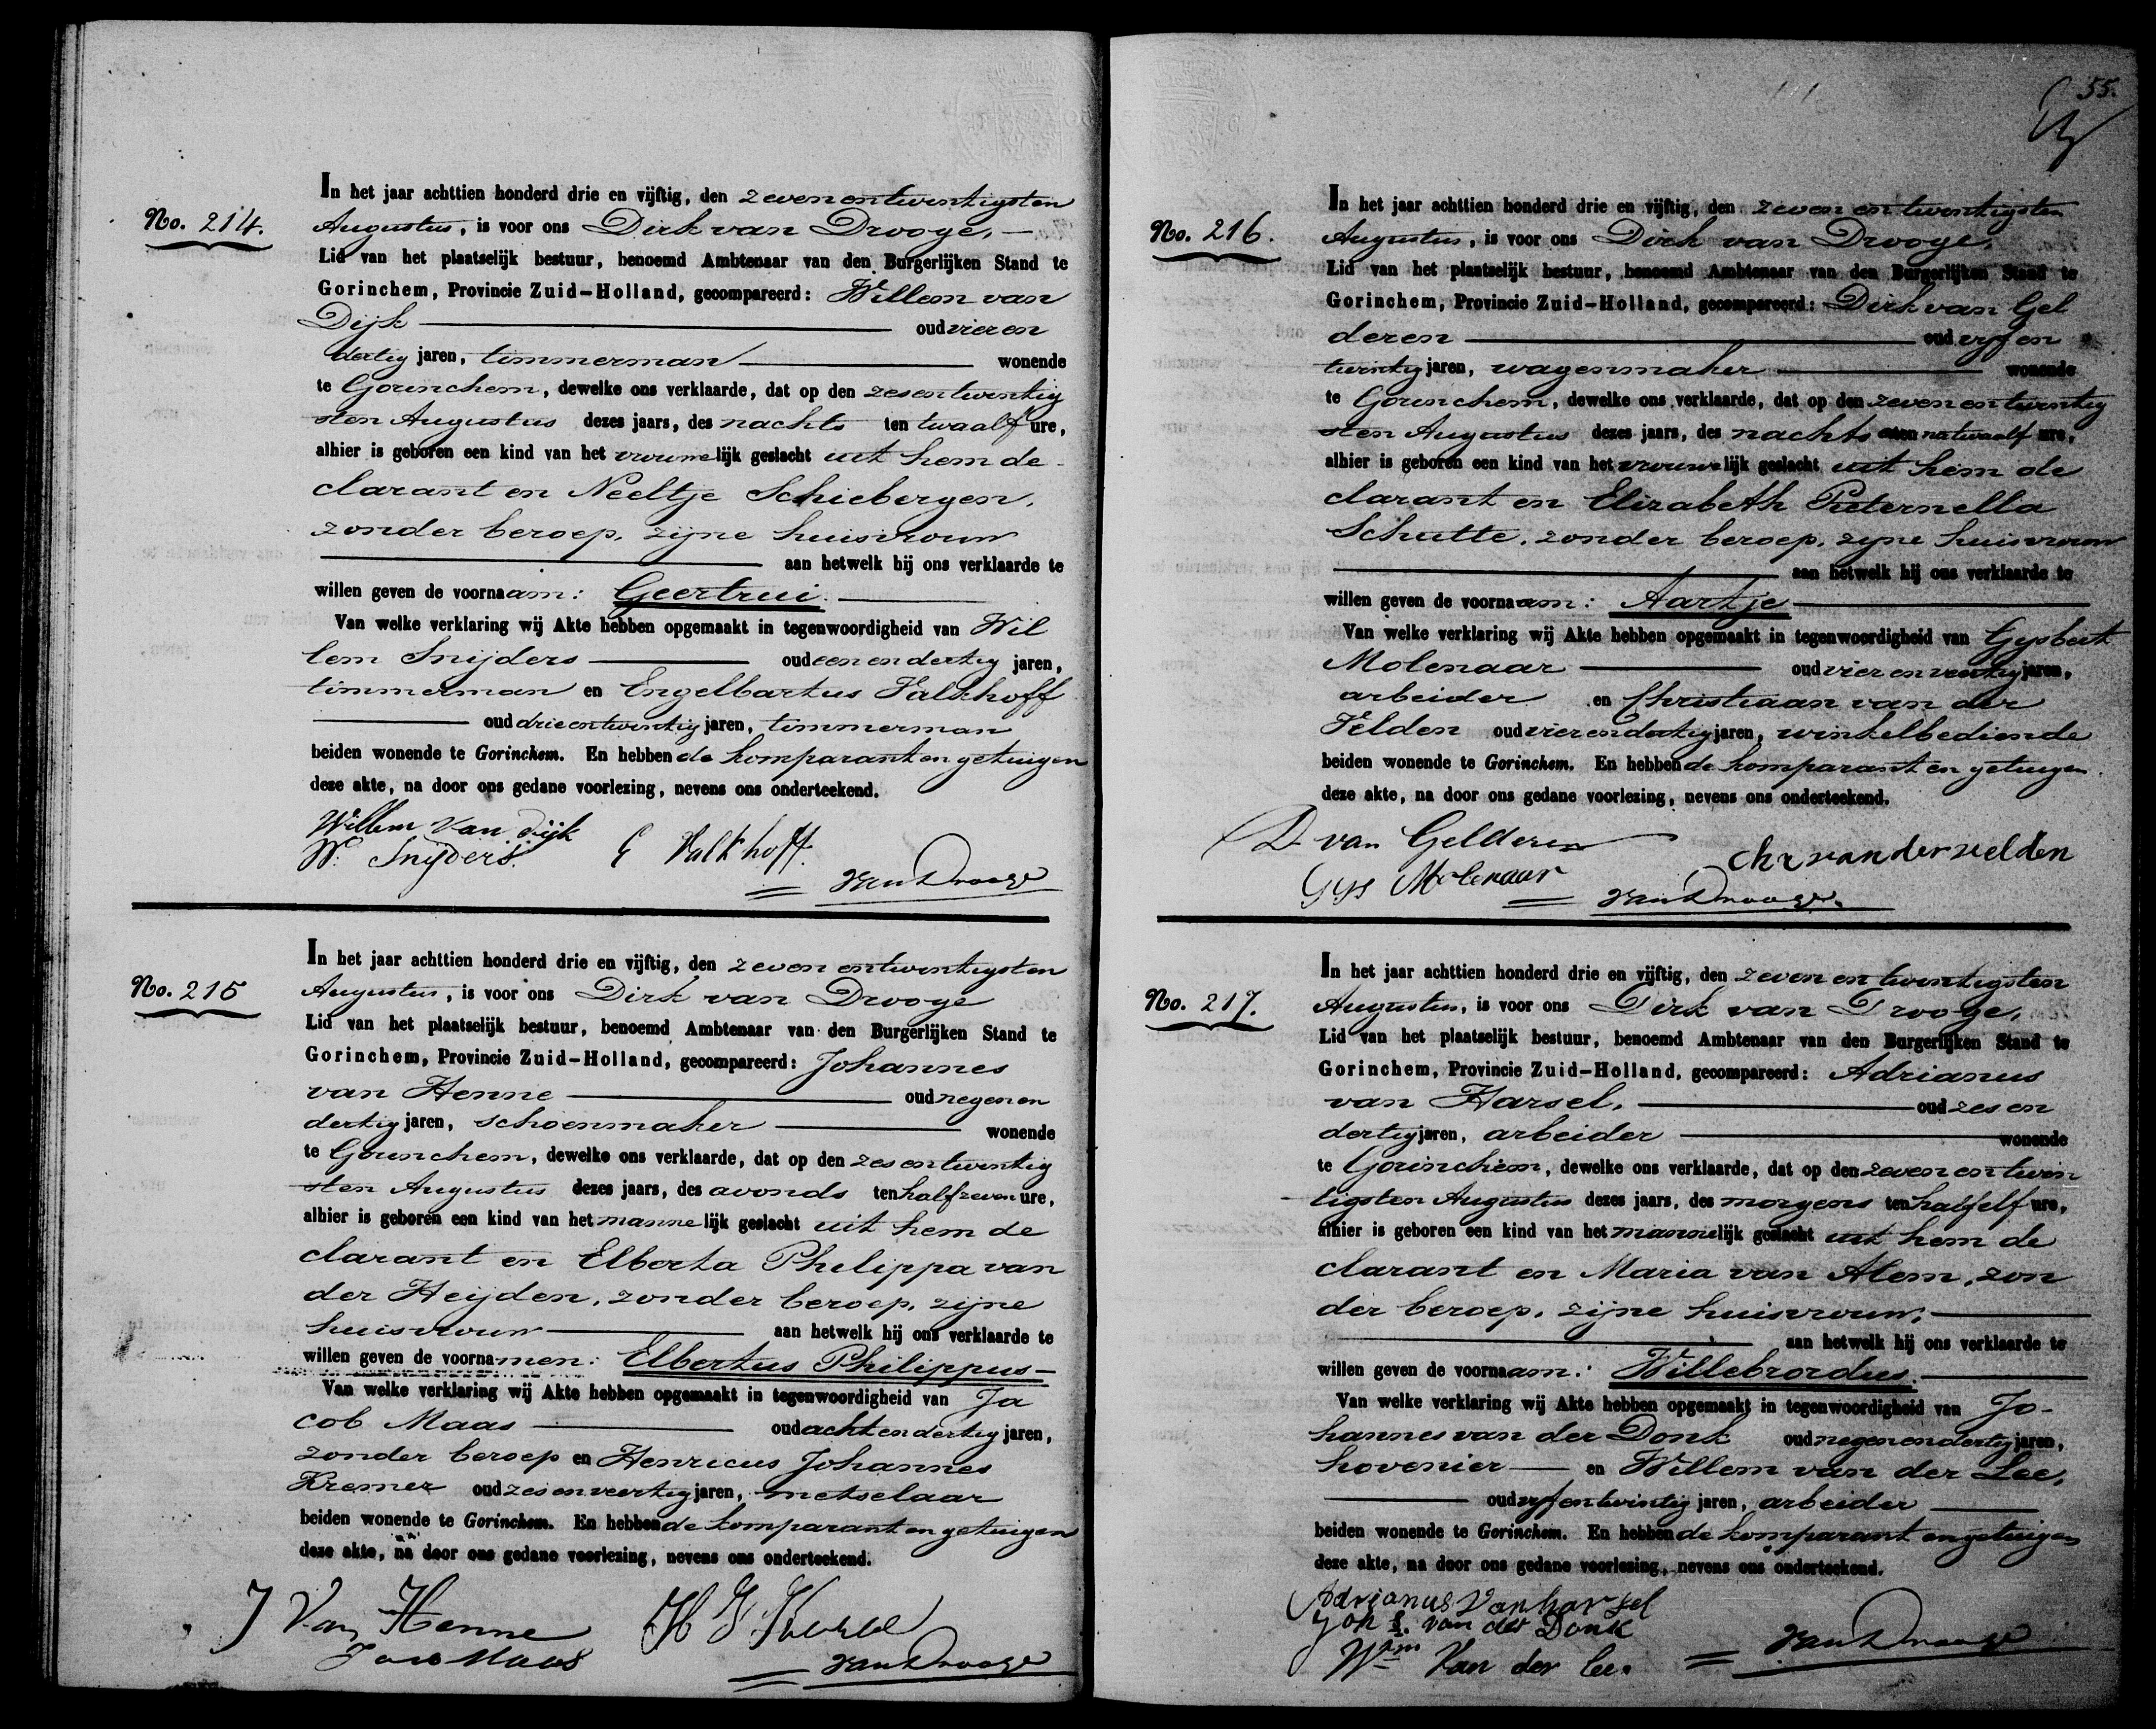 No. 214.
In het jaar achttien honderd drie en vijftig, den zevenentwintigsten
Augustus, is voor ons Dirk van Drooge,
Lid van het plaatselijk bestuur, benoemd Ambtenaar van den Burgerlijken Stand te
Gorinchem, Provincie Zuid-Holland, gecompareerd: Willem van
Dijk oud vier en
dertig jaren, timmerman wonende
te Gorinchem, dewelke ons verklaarde, dat op den zesentwintig
sten Augustus dezes jaars, des nachts ten twaalf ure,
alhier is geboren een kind van het vrouwelijk geslacht uit hem de
clarant en Neeltje Schiebergen,
zonder beroep, zijne huisvrouw
aan hetwelk hij ons verklaarde te
willen geven de voornaam: Geertrui.
Van welke verklaring wij Akte hebben opgemaakt in tegenwoordigheid van Wil
lem Snijders oud een en dertig jaren,
timmerman en Engelbartus Valkhoff
oud drieentwintig jaren, timmerman
beiden wonende te Gorinchem. En hebben de komparant en getuigen
deze akte, na door ons gedane voorlezing, nevens ons onderteekend.
Willem van Dijk
W. Snijders. E Valkhoff.
van Drooge
No. 215
In het jaar achttien honderd drie en vijftig, den zevenentwintigsten
Augustus, is voor ons Dirk van Drooge
Lid van het plaatselijk bestuur, benoemd Ambtenaar van den Burgerlijken Stand te
Gorinchem, Provincie Zuid-Holland, gecompareerd: Johannes
van Henne oud negen en
dertig jaren, schoenmaker wonende
te Gorinchem, dewelke ons verklaarde, dat op den zes en twintig
sten Augustus dezes jaars, des avonds ten half zeven ure,
alhier is geboren een kind van het mannelijk geslacht uit hem de
clarant en Elberta Philippa van
der Heijden, zonder beroep, zijne
huisvrouw aan hetwelk hij ons verklaarde te
willen geven de voornamen: Elbertus Philippus
Van welke verklaring wij Akte hebben opgemaakt in tegenwoordigheid van Ja
cob Maas oud acht en dertig jaren,
zonder beroep en Henricus Johannes
Kremer oud zes en veertig jaren, metselaar
beiden wonende te Gorinchem. En hebben de komparant en getuigen
deze akte, na door ons gedane voorlezing, nevens ons onderteekend.
J Van Henne
Jacob Maas
van Drooge
55.
No. 216.
In het jaar achttien honderd drie en vijftig, den zeven en twintigsten
Augustus, is voor ons Dirk van Drooge,
Lid van het plaatselijk bestuur, benoemd Ambtenaar van den Burgerlijken Stand te
Gorinchem, Provincie Zuid-Holland, gecompareerd: Dirk van Gel
deren oud vyf en
twintig jaren, wagenmaker wonende
te Gorinchem, dewelke ons verklaarde, dat op den zeven en twintig
sten Augustus dezes jaars, des nachts ten na twaalf ure,
alhier is geboren een kind van het vrouwelijk geslacht uit hem de
clarant en Elizabeth Pieternella
Schutte, zonder beroep, zyne huisvrouw
aan hetwelk hij ons verklaarde te
willen geven de voornaam: Aartje
Van welke verklaring wij Akte hebben opgemaakt in tegenwoordigheid van Gysbert
Molenaar oud vier en veertig jaren,
arbeider en Christiaan van der
Velden oud vier en dertig jaren, winkelbediende
beiden wonende te Gorinchem. En hebben de komparant en getuigen
deze akte, na door ons gedane voorlezing, nevens ons onderteekend.
D van Gelderen
chr van der velden
Gys Molenaar
van Drooge.
No. 217.
In het jaar achttien honderd drie en vijftig, den zeven en twintigsten
Augustus, is voor ons Dirk van Drooge,
Lid van het plaatselijk bestuur, benoemd Ambtenaar van den Burgerlijken Stand te
Gorinchem, Provincie Zuid-Holland, gecompareerd: Adrianus
van Harsel, oud zes en
dertig jaren, arbeider wonende
te Gorinchem, dewelke ons verklaarde, dat op den zeven en twin
tigsten Augustus dezes jaars, des morgens ten half elf ure,
alhier is geboren een kind van het mannelijk geslacht uit hem de
clarant en Maria van Alem, zon
der beroep, zijne huisvrouw,
aan hetwelk hij ons verklaarde te
willen geven de voornaam: Willebrordus.
Van welke verklaring wij Akte hebben opgemaakt in tegenwoordigheid van Jo-
hannes van der Donk oud negenendertig jaren,
hovenier en Willem van der Lee,
oud vyf en twintig jaren, arbeider
beiden wonende te Gorinchem. En hebben de komparant en getuigen
deze akte, na door ons gedane voorlezing, nevens ons onderteekend.
Adrianus Van harsel
Joh s. van der Donk
Wm Van der lee.
van Drooge